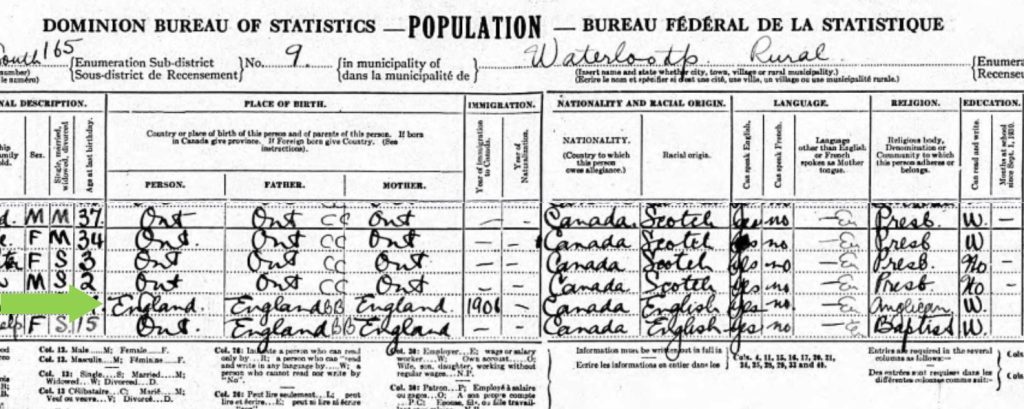 DOMINION BUREAU OF STATISTICS — POPULATION — BUREAU FÉDÉRAL DE LA STATISTIQUE
South 165 Enumeration Sub-district No. 9. in municipality of Waterloo tp. Rural Enumera
number) Sous-district de Recensement dans la municipalité de (Insert name and state whether city, town, village or rural municipality.) Recense
le numéro) (Ecrire le nom et spécifier si c'est une cité, une ville, un village ou une municipalité rurale.)
NAL DESCRIPTION. PLACE OF BIRTH. IMMIGRATION. NATIONALITY AND RACIAL ORIGIN. LANGUAGE. RELIGION. EDUCATION.
Sex. Single, married, widowed, divorced Age at last birthday. Country or place of birth of this person and of parents of this person. If born in Canada give province. If Foreign born give Country. (See instructions). Year of immigration to Canada. Year of Naturalization. NATIONALITY. (Country to which this person owes allegiance.) Racial origin. Can speak English. Can speak French. Language other than English or French spoken as Mother tongue. Religious body, Denomination or Community to which this person adheres or belongs. Can read and write. Months at school since Sept. 1, 1930.
PERSON. FATHER. MOTHER.
M M 37 Ont Ont CC Ont — — Canada Scotch yes no — En Presb. W. —
F M 34 Ont. Ont CC Ont — — Canada Scotch yes no — En Presb W —
F S 3 Ont. Ont CC Ont — — Canada Scotch yes no — En Presb. No —
M S 2 Ont Ont CC Ont — — Canada Scotch yes no — En Presb. No —
England. England BB England 1906 — Canada English yes no — En Anglican W.
help F S 15 Ont. England BB England — — Canada English yes no — En Baptist W.
Col. 12. Male....M; Female...F.
Col. 12. Masculin....M; Féminine...F.
Col. 13: Single...S; Married...M; Widowed...W; Divorced...D.
Col. 13 Célibataire...C; Marié...M; Veuf ou veuve...V; Divorcé...D.
a person who can read only by
and write in any language by.....W; a person who cannot read nor write by "No".
Peut lire seulement... L; peut lire et écrire
Col. 30: Employer...E; wage or salary worker....W; Own account...O; Wife, son, daughter, working without regular wages...N.P.
Col. 30: Patron...P; Employé à salaire ou gages...O; A son propre compte
Information must be written out in full in
Ecrire les informations en entier dans les
Cols. 4, 11, 15, 16, 17, 20, 21, 24, 25, 28, 29, 33 and 40.
Entries are required in the several columns as follows:—
Des entrées sont requises dans les différentes colonnes comme suit:—